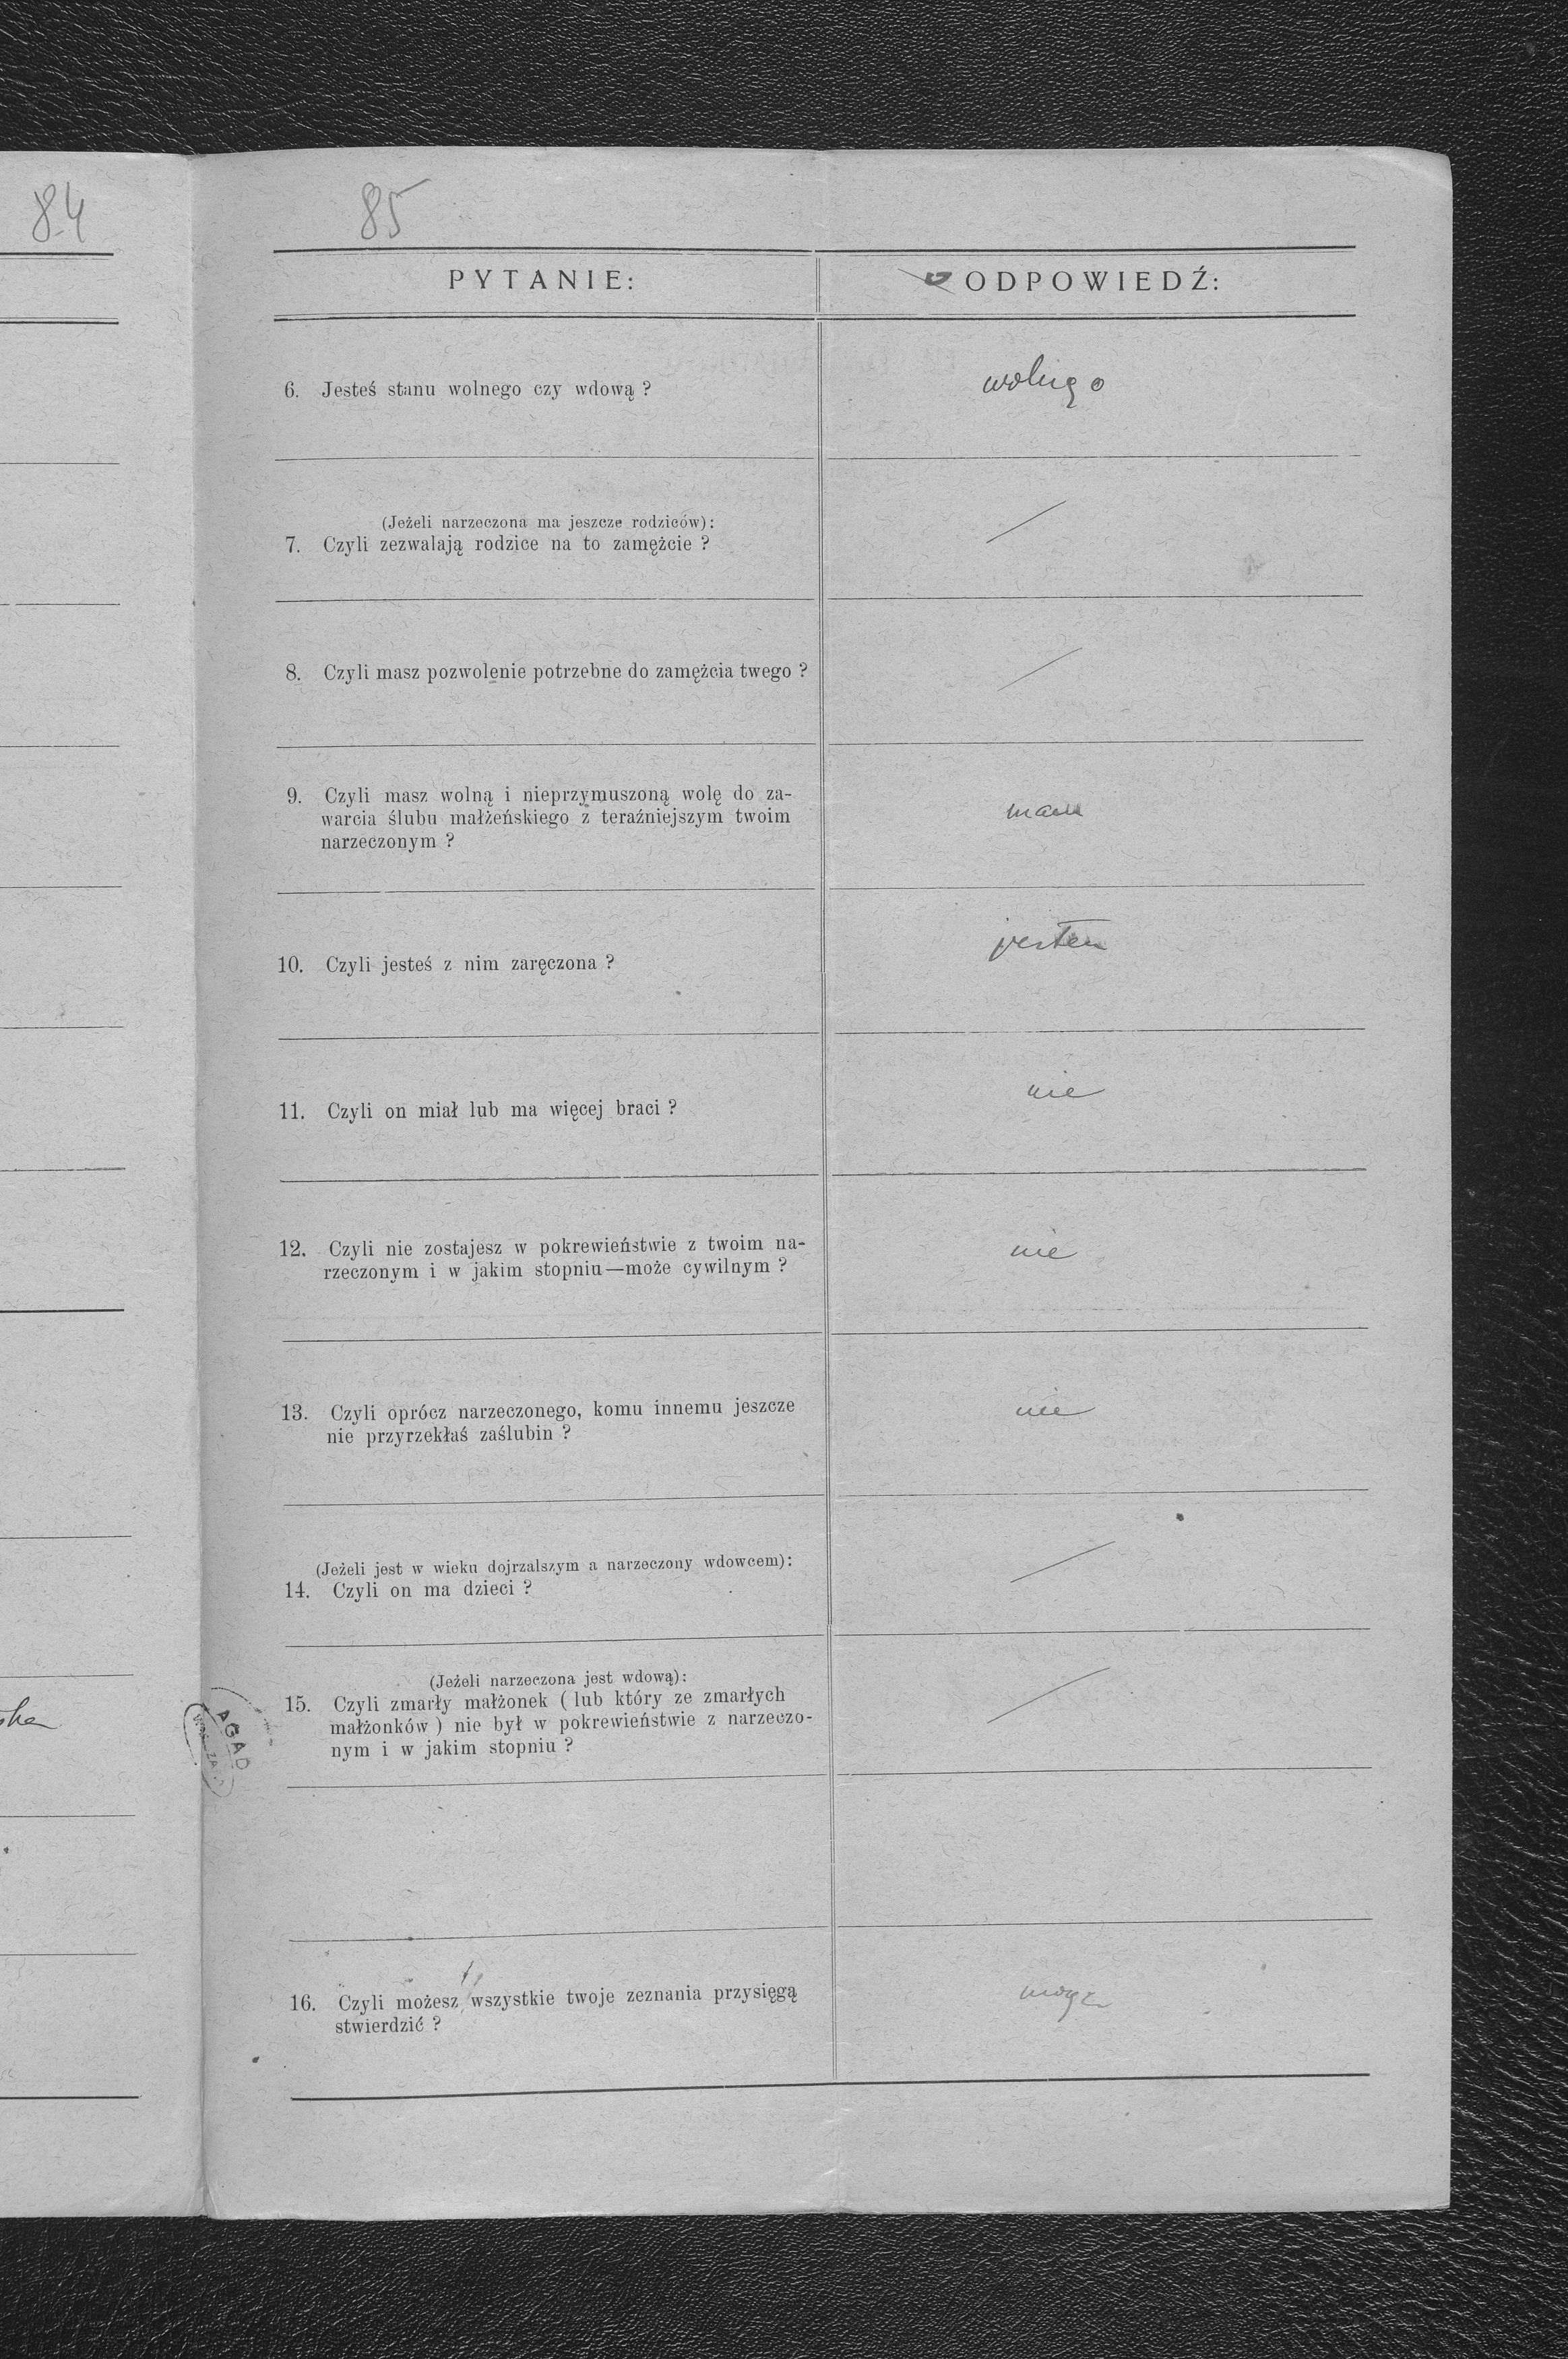 84
85
PYTANIE:
ODPOWIEDŹ:
6. Jesteś stanu wolnego czy wdową ?
wolnego
(Jeżeli narzeczona ma jeszcze rodziców):
7. Czyli zezwalają rodzice na to zamężcie ?
8. Czyli masz pozwolenie potrzebne do zamężcia twego ?
9. Czyli masz wolną i nieprzymuszoną wolę do za-
warcia ślubu małżeńskiego z teraźniejszym twoim
narzeczonym ?
mam
10. Czyli jesteś z nim zaręczona ?
jestem
11. Czyli on miał lub ma więcej braci ?
nie
12. Czyli nie zostajesz w pokrewieństwie z twoim na-
rzeczonym i w jakim stopniu—może cywilnym ?
nie
13. Czyli oprócz narzeczonego, komu innemu jeszcze
nie przyrzekłaś zaślubin ?
nie
(Jeżeli jest w wieku dojrzalszym a narzeczony wdowcem):
14. Czyli on ma dzieci ?
(Jeżeli narzeczona jest wdową):
15. Czyli zmarły małżonek ( lub który ze zmarłych
małżonków ) nie był w pokrewieństwie z narzeczo-
nym i w jakim stopniu ?
AGAD
16. Czyli możesz wszystkie twoje zeznania przysięgą
stwierdzić ?
mogę